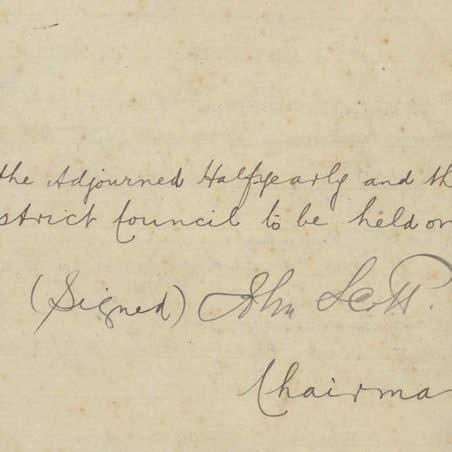 the Adjourned Halfyearly and th
strict Council to be held on
(Signed) John Scott.
Chairma